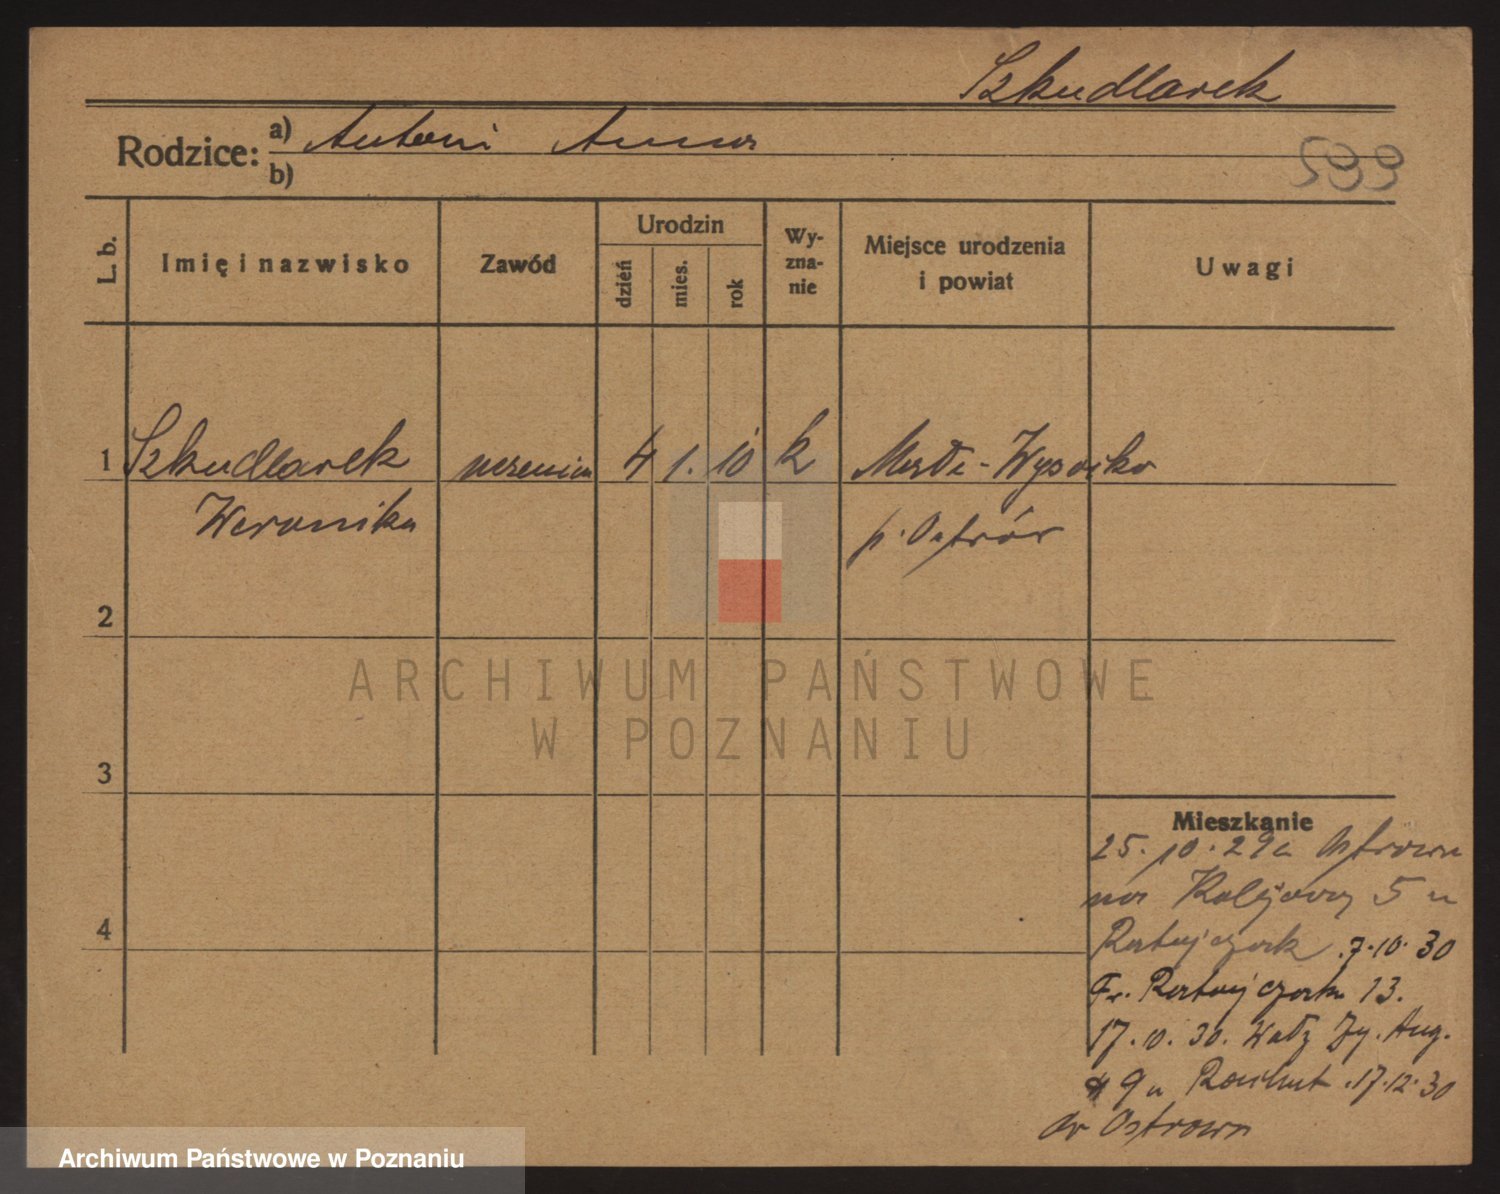 Szkudlarek
Rodzice: a) Antoni Anna
b)
599
L. b.
Imię i nazwisko
Zawód
Urodzin
dzień
mies.
rok
Wy-
zna-
nie
Miejsce urodzenia
i powiat
Uwagi
1 Szkudlarek uczenica 4 1. 10 k Małe-Wysocko
Weronika p. Ostrów
2
3
4
ARCHIWUM PAŃSTWOWE
W POZNANIU
Mieszkanie
25.10.29 z Ostrowa
na Kolejową 5 u
Ratajczak. 7.10.30
Fr. Ratajczaka 13.
17.10.30. Wały Zy. Aug.
9 u 17.12.30
do Ostrowa
Archiwum Państwowe w Poznaniu